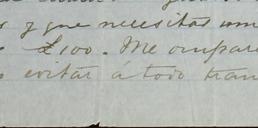 y que necesitas un
£100. Me ompar
evitar á todo tran